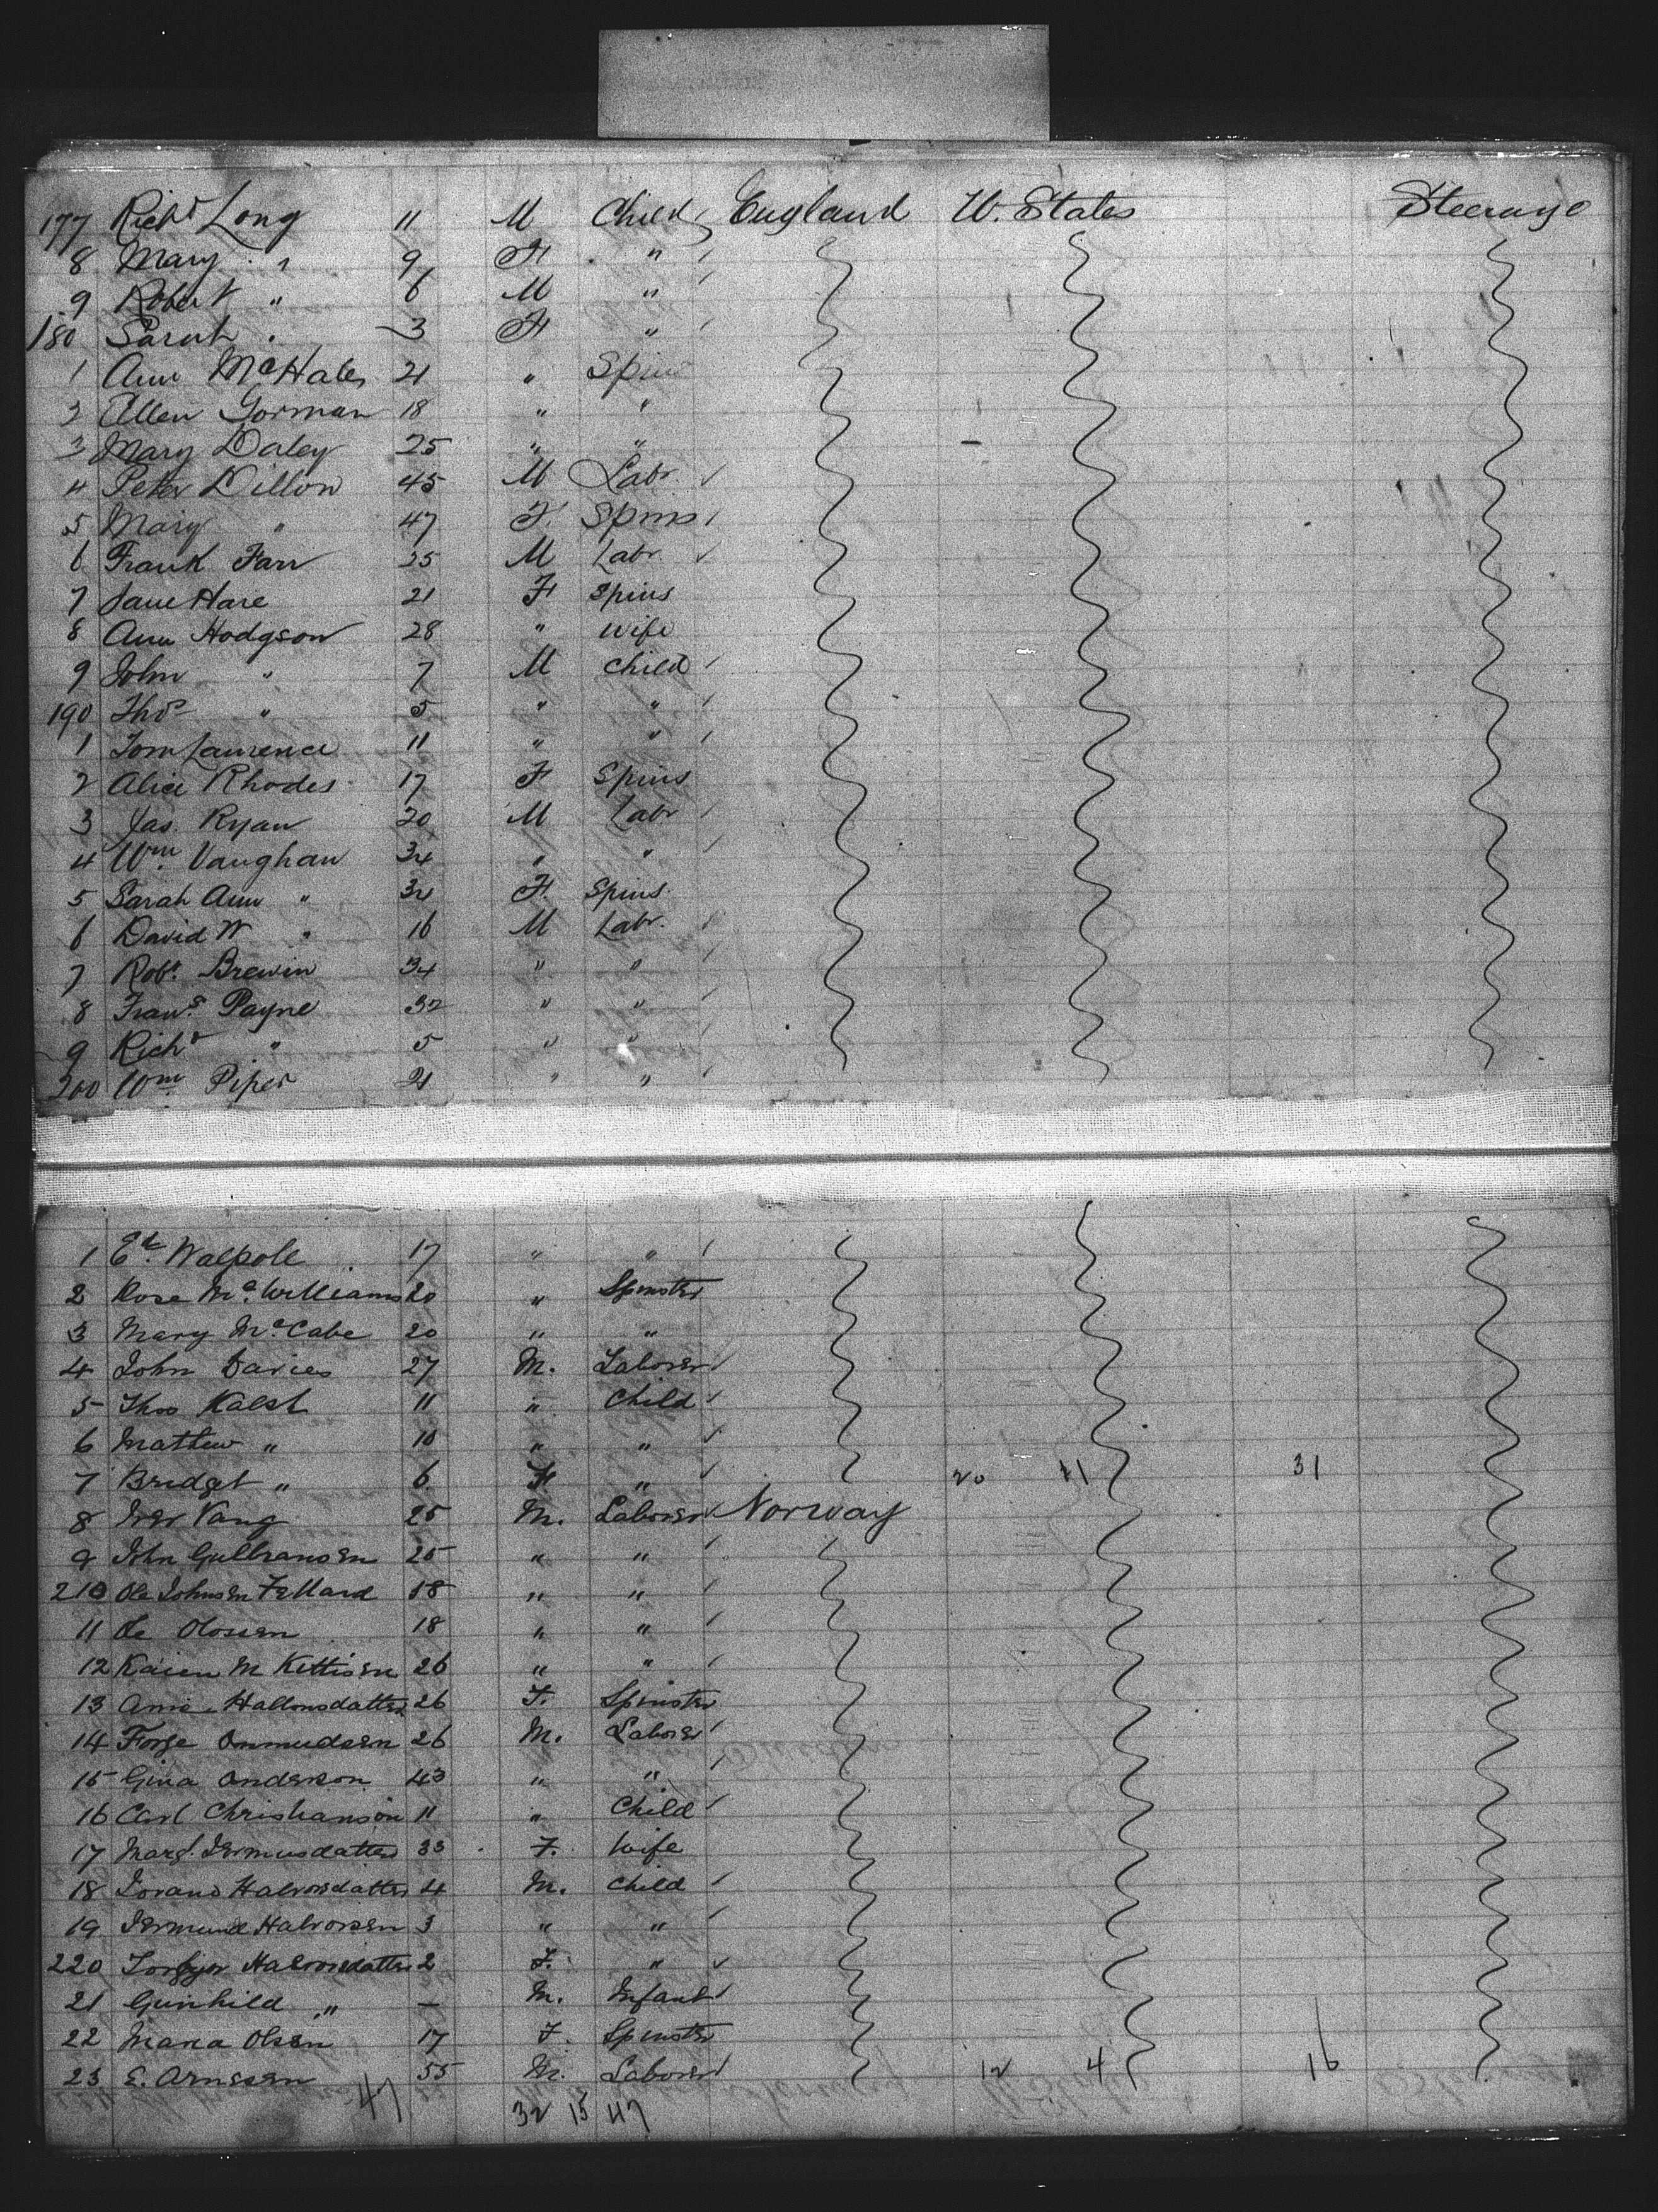 177 Richd Long 11 M Child England U. States Steerage
8 Mary " 9 F "
9 Robert " 6 M "
180 Sarah " 3 F "
1 Ann McHale 21 " Spins
2 Ellen Gorman 18 " "
3 Mary Daley 25 " "
4 Peter Dillon 45 M Labr.
5 Mary " 47 F. Spins
6 Frank Farr 25 M Labr.
7 Jane Hare 21 F Spins
8 Ann Hodgson 28 " Wife
9 John " 7 M Child
190 Thos " 5 " "
1 Tom Laurence 11 " "
2 Alice Rhodes 17 F Spins
3 Jas. Ryan 20 M Labr
4 Wm. Vaughan 34 " "
5 Sarah Ann " 34 F. Spins.
6 David W " 16 M Labr.
7 Robt. Brewin 34 " "
8 Frans. Payne 32 " "
9 Richd " 5 " "
200 Wm Piper 21 " "
1 Ed. Walpole 17 " "
2 Rose Mc.Williams 20 " Spinster
3 Mary Mc.Cabe 20 " "
4 John Davies 27 M. Laborer
5 Thos 11 " Child
6 Mathew " 10 " "
7 Bridget " 6 F. " 20 11 31
8 Iver Vang 25 M. Laborer Norway
9 John Gulbransen 25 " "
210 Ole Johnsen 18 " "
11 Ole Olossen 18 " "
12 Karen M Kittisen 26 " "
13 26 F. Spinster
14 Ommudsen 26 M. Laborer
15 Gina Anderson 43 " "
16 Carl Christianson 11 " Child
17 Margt. 33 F. Wife
18 Halvorsdatter 4 M. Child
19 Halvorsen 3 " "
220 Halvorsdatter 2 F. "
21 Gunhild " — M. Infant
22 Maria Olsen 17 F. Spinster
23 E. Arnesen 55 M. Laborer 12 4 16
47 32 15 47